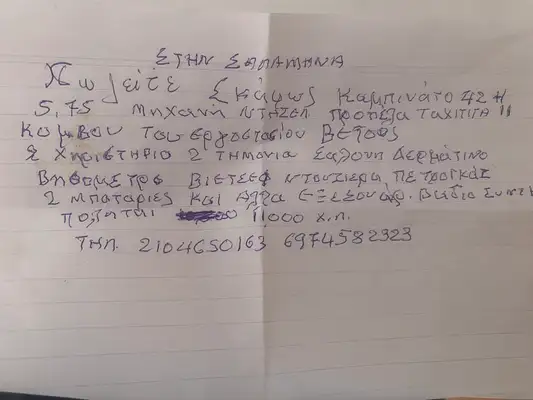 ΣΤΗΝ ΣΑΛΑΜΗΝΑ
Πωλείτε Σκάφως Καμπινάτο 42 H
5,75 Μηχανή ΝΤΗΖΕΛ Προπέλα Ταχιτιτα 11
Κομβου Του εργοστασίου ΒΕΤΟΥΣ
2 Χηριστήριο 2 Τημονια Σαλονη Δερμάτινο
Βηθομετρο ΒΙΕΤΣΕΦ ντουζιερα ΠΕΤΡΟΓΚΑΖ
2 μπαταρίες και Αλλα Εξεσουάρ. Βίδιο
πολητai 11,000 χ.π.
ΤΗΛ 2104650163 6974582323